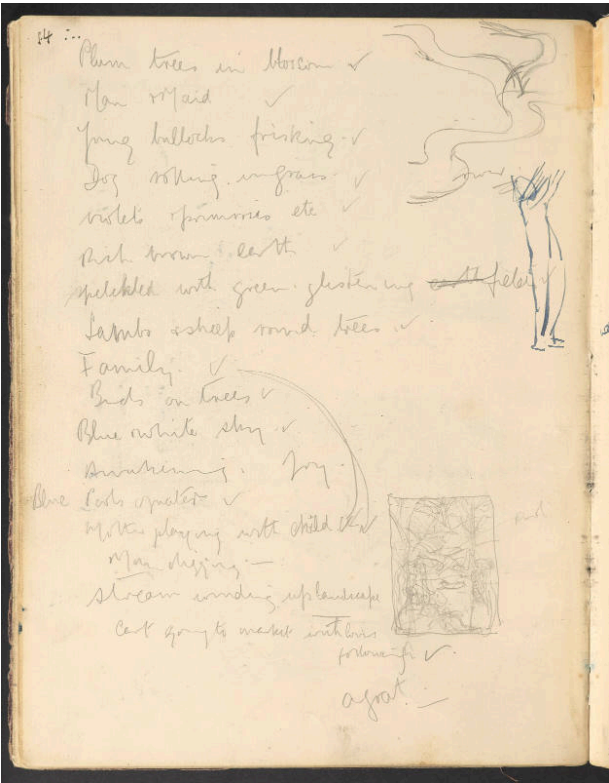 14
Plum trees in blossom ✓
Man & Maid ✓
Young bullocks frisking. ✓
Dog rolling in grass. ✓
violets & primroses etc ✓
Rich brown earth ✓
with green glistening fields ✓
Lambs & sheep round trees ✓
Family. ✓
Birds on trees ✓
Blue & white sky. ✓
Awakening. Joy.
Blue
Mother playing with child ✓
Man digging —
Stream winding up landscape
Cart going to market with
following ✓.
a goat. —